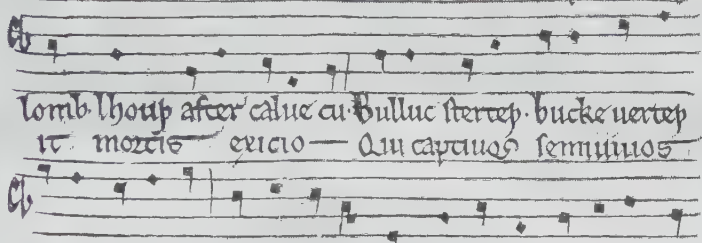 lomb· lhouþ after calue cu· Bulluc sterteþ· bucke uerteþ
it mortis exicio— Qui captiuos semiuiuos